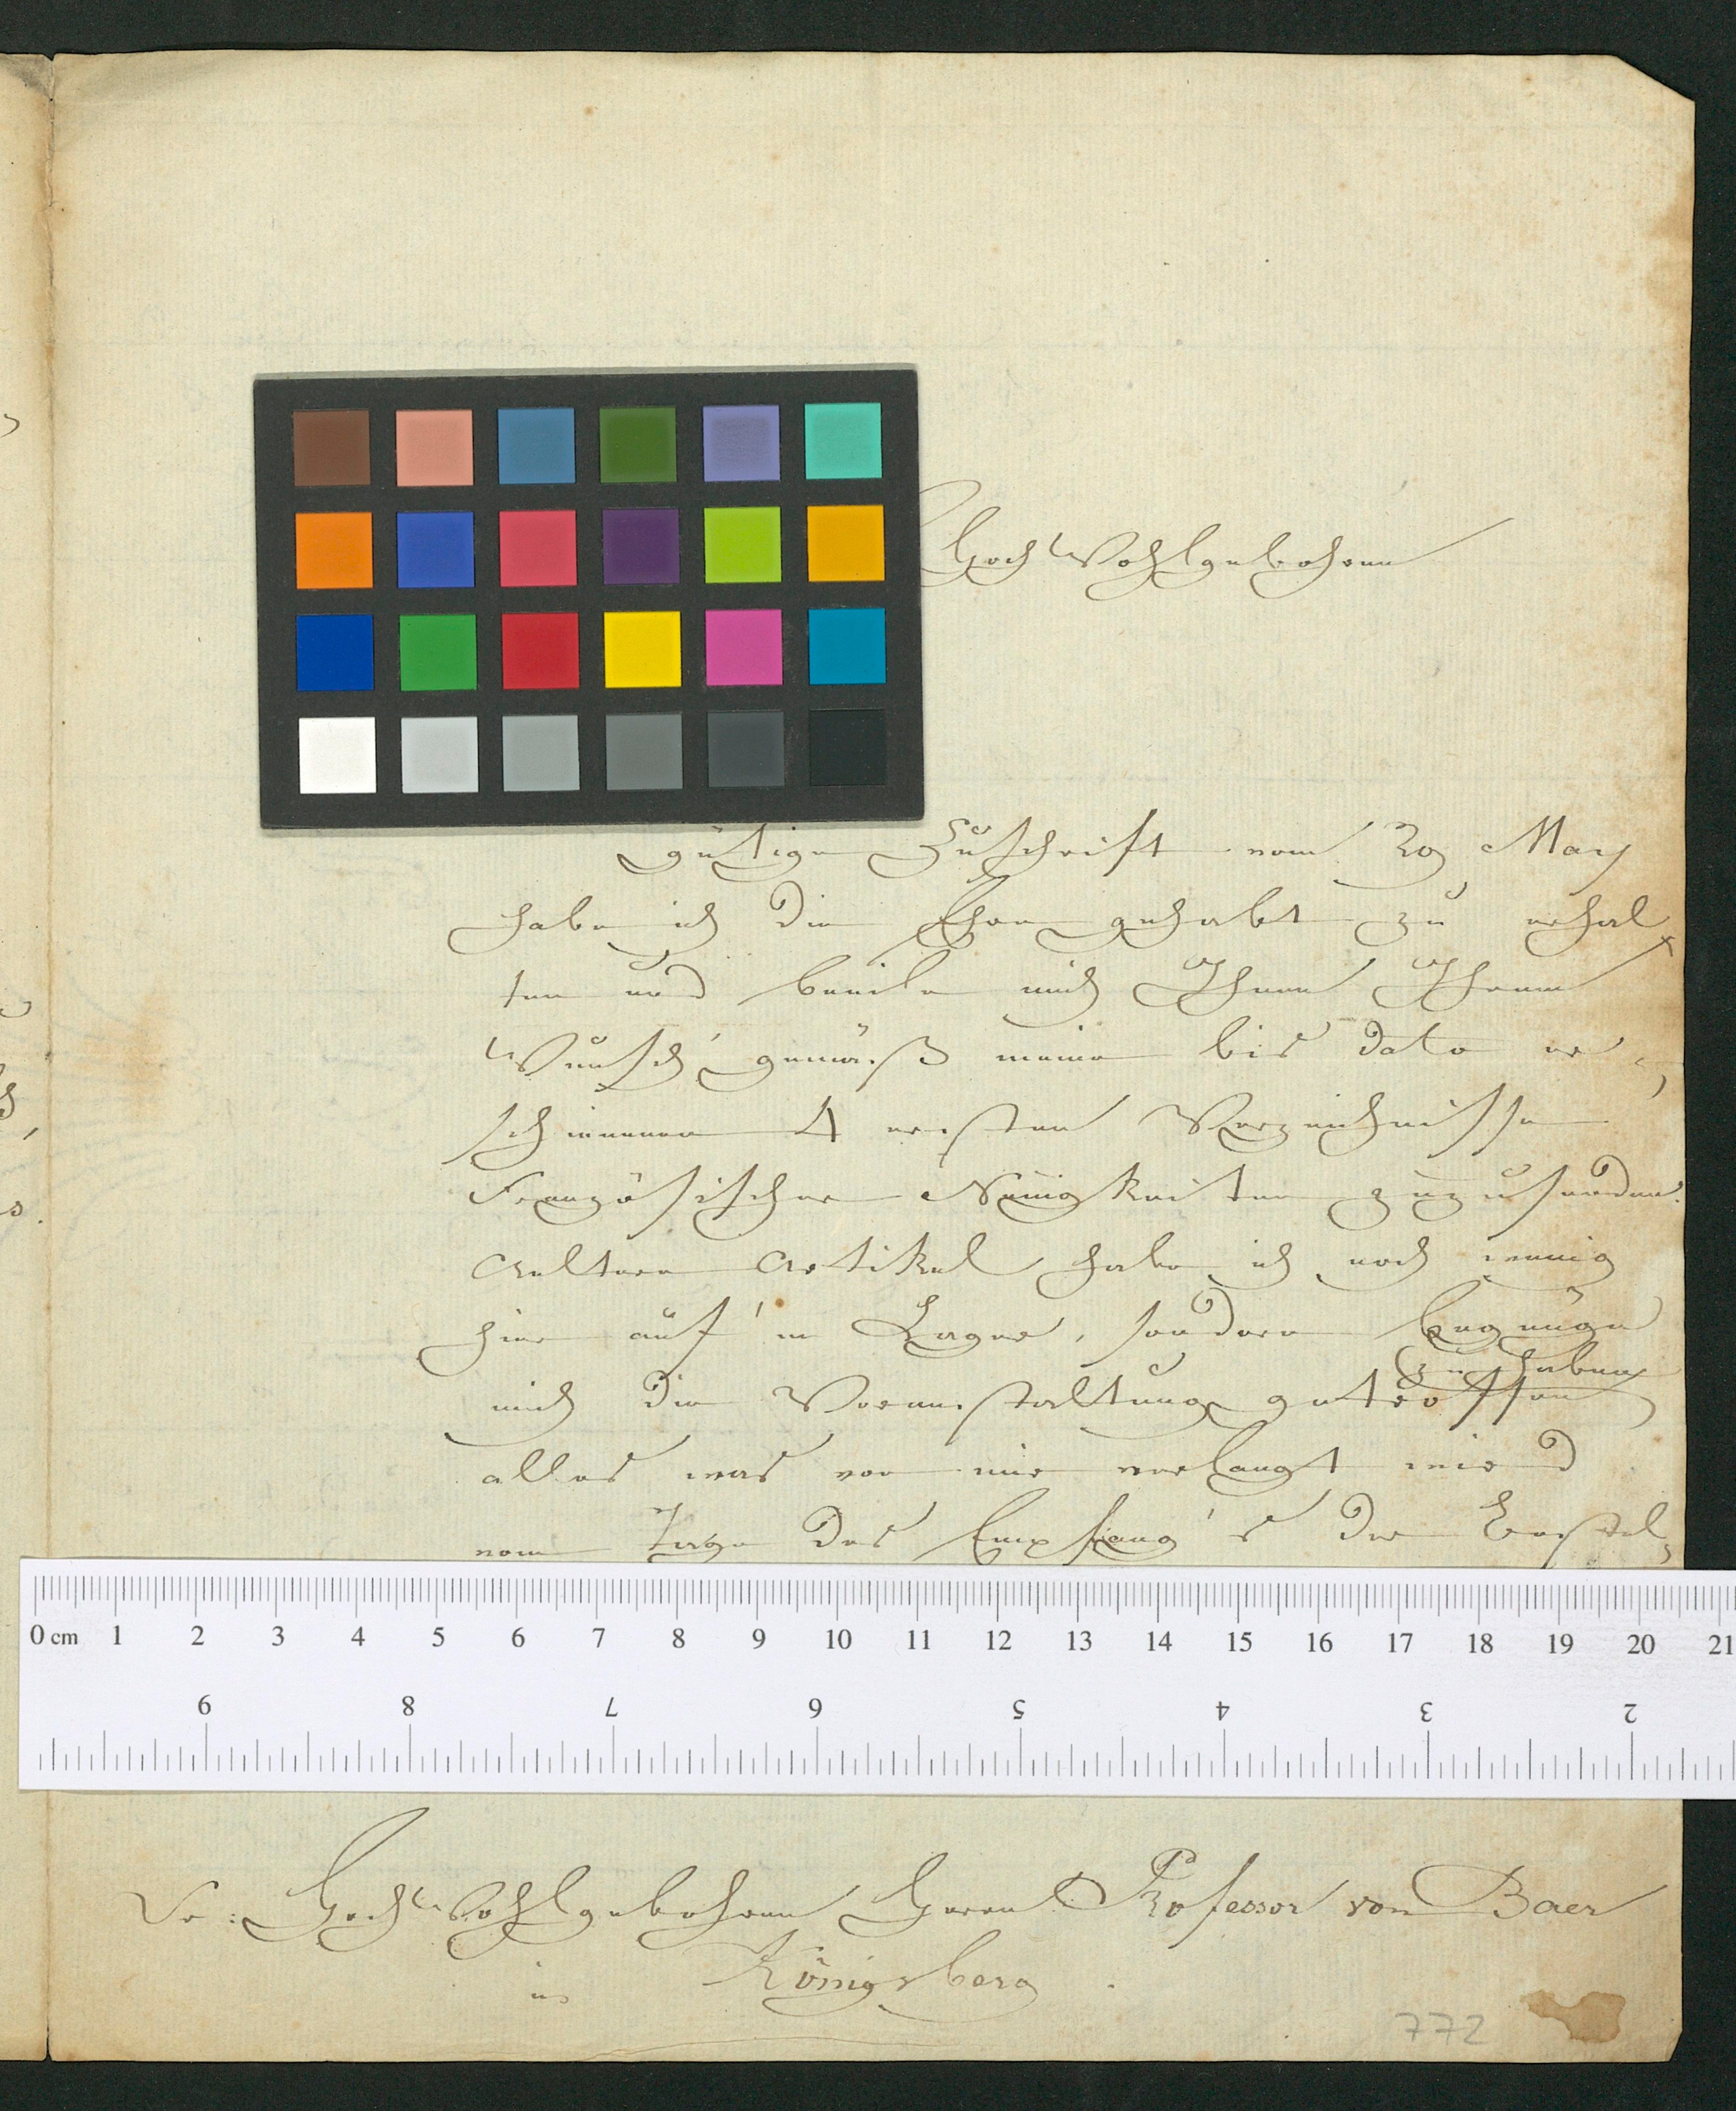 HochWohlgebohren
gütige Zuschrift vom 29 May
habe ich die Ehre gehabt zu erhal
ten und beeile mich Ihnen Ihrem
Wunsch' gemäß meine bis dato er„
schienenen 4 ersten Verzeichnisse
Französischer Neuigkeiten zuzusenden.
Aeltere Artikel habe ich noch wenig
hier auf'm Lager, sondern begnüge
zu haben
mich die Veranstaltung getroffen
alles was von mir verlangt wird
vom Tage des Empfang's der Bestel„
0 cm 1 2 3 4 5 6 7 8 9 10 11 12 13 14 15 16 17 18 19 20 21
9 8 7 6 5 4 3 2
Sr: HochWohlgebohren Herrn Professor von Baer
in Königsberg.
772